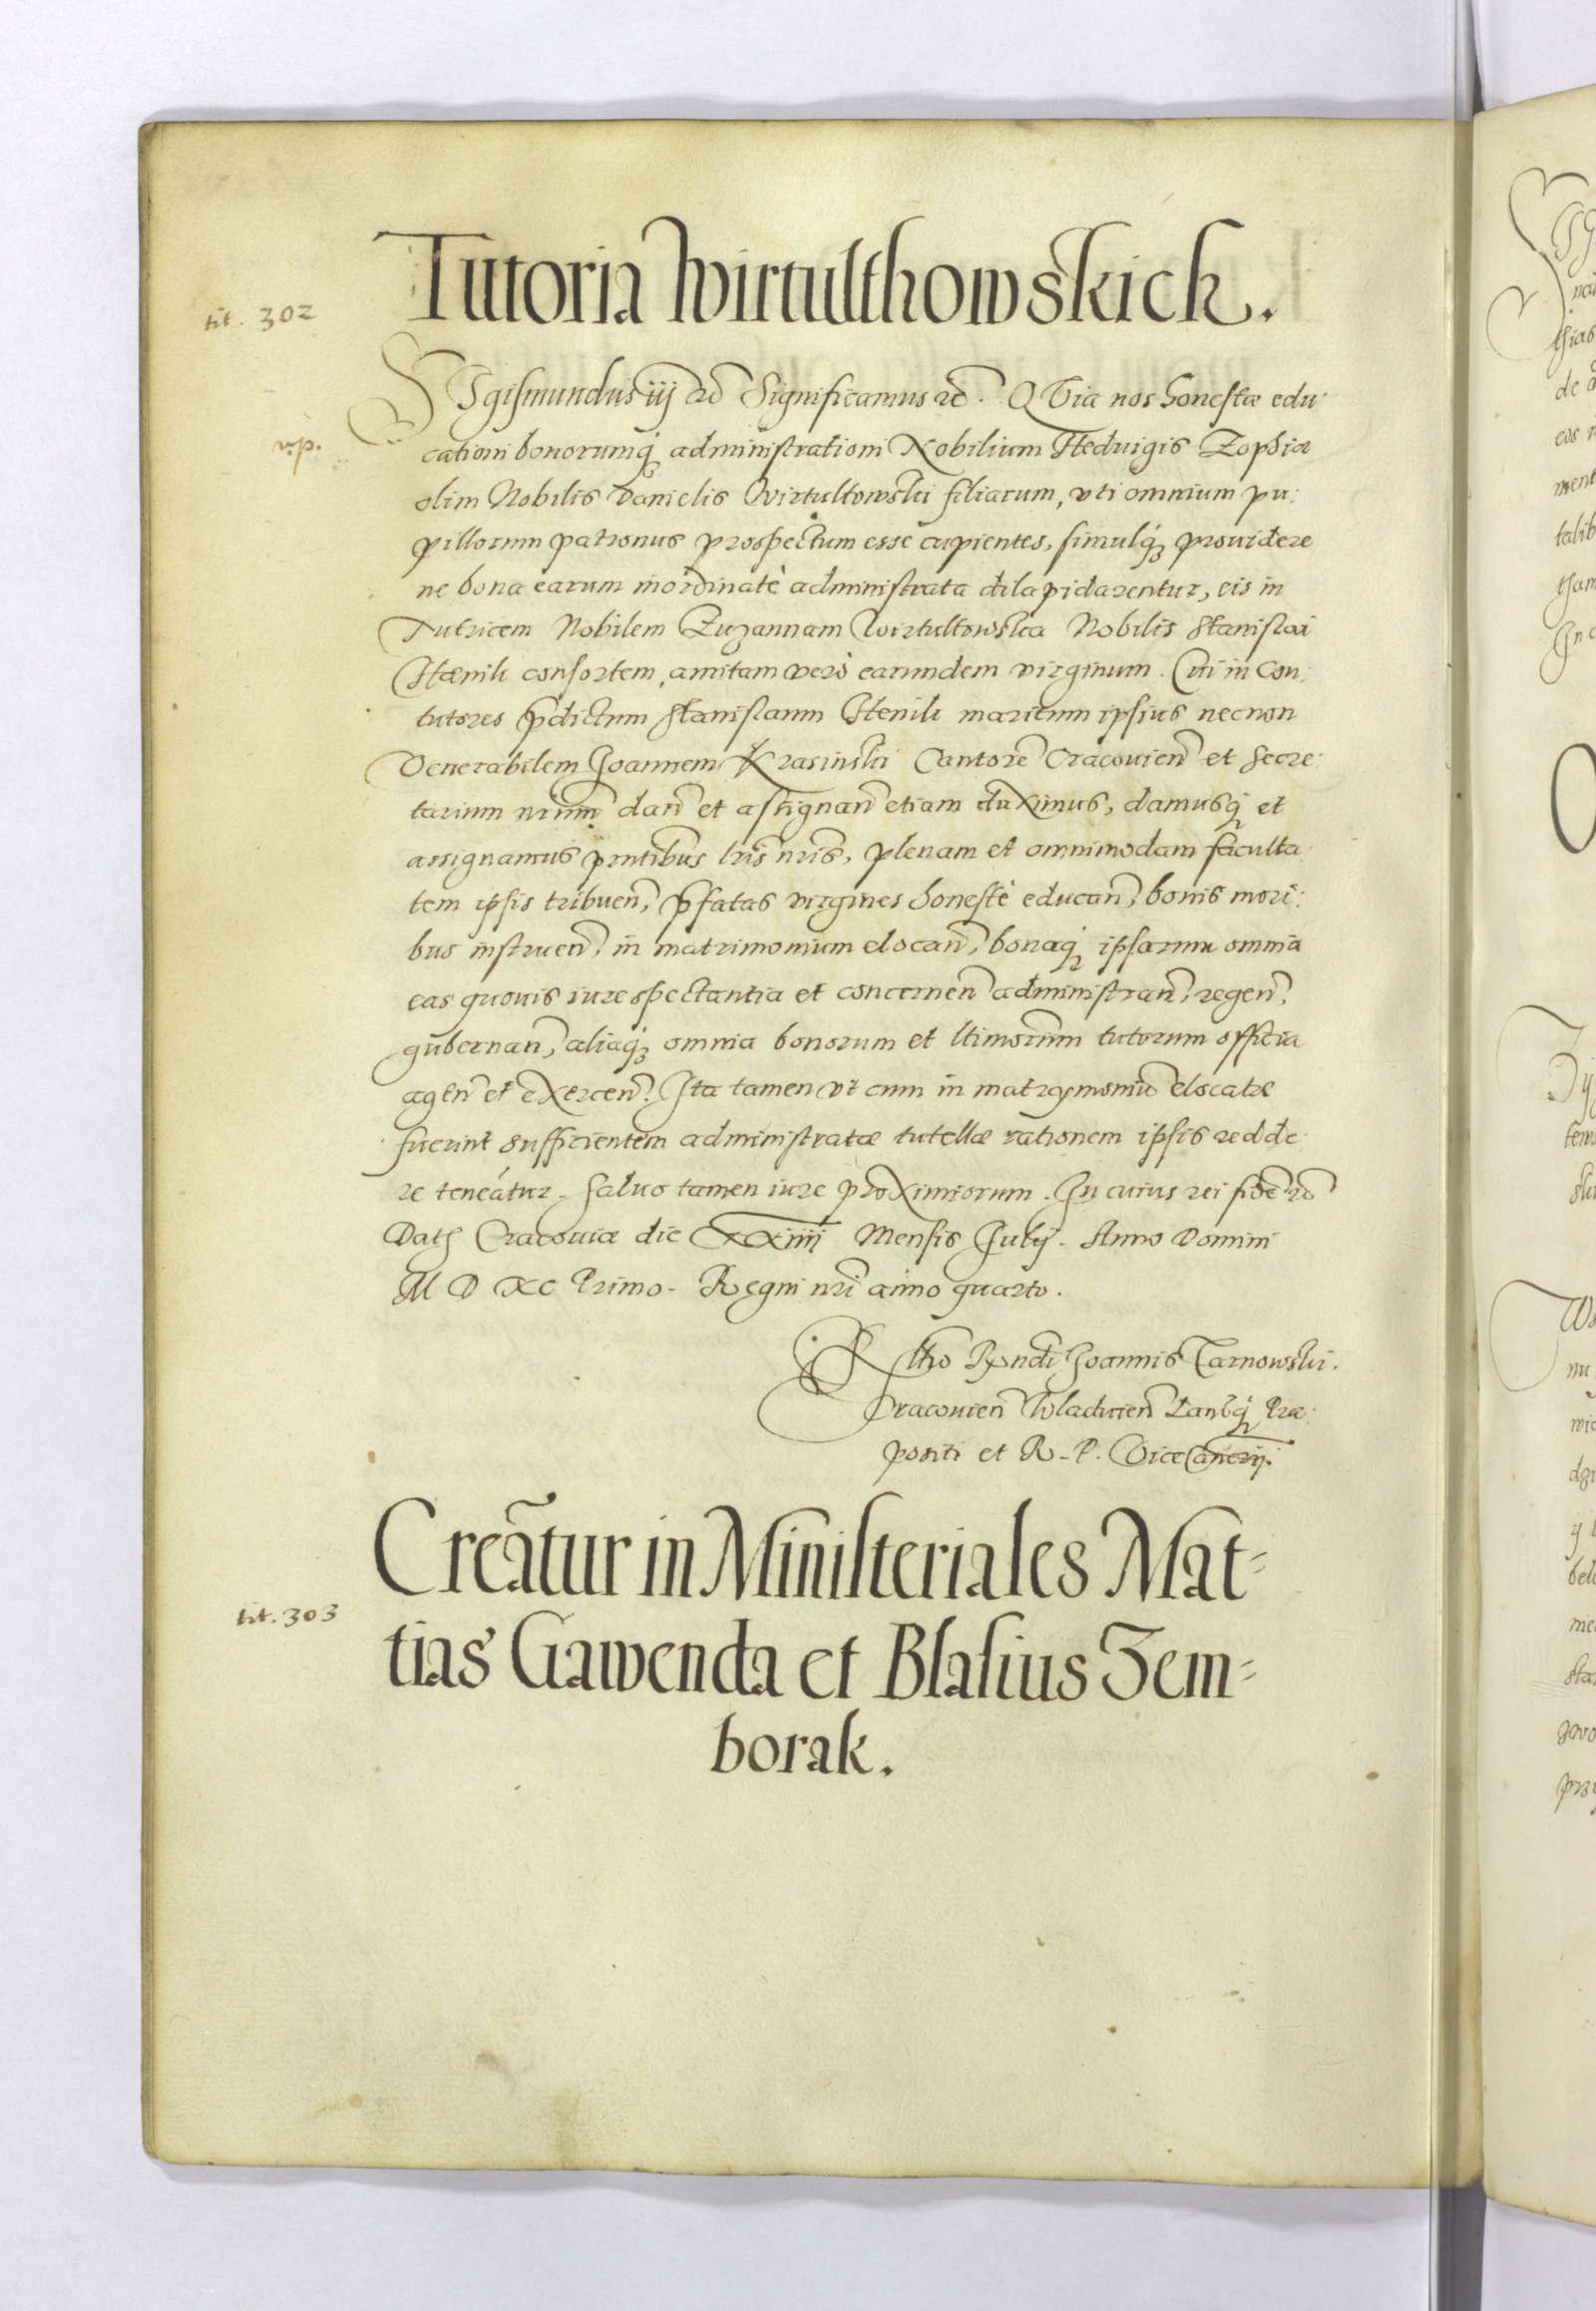 Tutoria Wirtulthowskich.
tit. 302
SIgismundus iij etc Significamus etc. QVia nos honestæ edu:
cationi bonorumq̃ administrationi Nobilium Heduigis Zophiæ
olim Nobilis Danielis Wirtultowski filiarum, vti omnium pu:
pillorum patronus prospectum esse cupientes, simulq̃ prouidere
ne bona earum inordinatè administrata dilapidarentur, eis in
Tutricem Nobilem Zuzannam Wirtultowska Nobilis Stanislai
consortem, amitam verò earundem virginum. Cui in Con:
tutores p̃dictum Stanislaum maritum ipsius necnon
Venerabilem Joannem Krasinski Cantorẽ Cracouieñ et Secre:
tarium nr̃um dañ et assignañ etiam duximus, damusq̃ et
assignamus pñtibus lr̃is nr̃is, plenam et omnimodam faculta
tem ipsis tribueñ, p̃fatas virgines honestè educañ, bonis mori:
bus instrueñ, in matrimonium elocañ, bonaq̃ ipsarum omnia
eas quouis iure spectantia et concerneñ administrañ, regeñ,
gubernañ, aliaq̃ omnia bonorum et ltimorum tutorum officia
ageñ et exerceñ. Ita tamen vt cum in matrymoniũ elocatæ
fuerint sufficientem administratæ tutellæ rationem ipsis redde:
re teneátur. Saluo tamen iure proximiorum. In cuius rei fidẽ etc
Dat Cracouiæ die XXiiij Mensis Julij. Anno Domini
M D XC Primo. Regni nr̃i anno quarto.
Rltio Rṽndi Joannis Tarnowski.
Cracouieñ Wladicieñ Lanẽq̃ Præ:
positi et R. P. ViceCancrij.
Creãtur in Ministeriales Mat=
tit. 303
tias Gawenda et Blasius Zem=
borak.